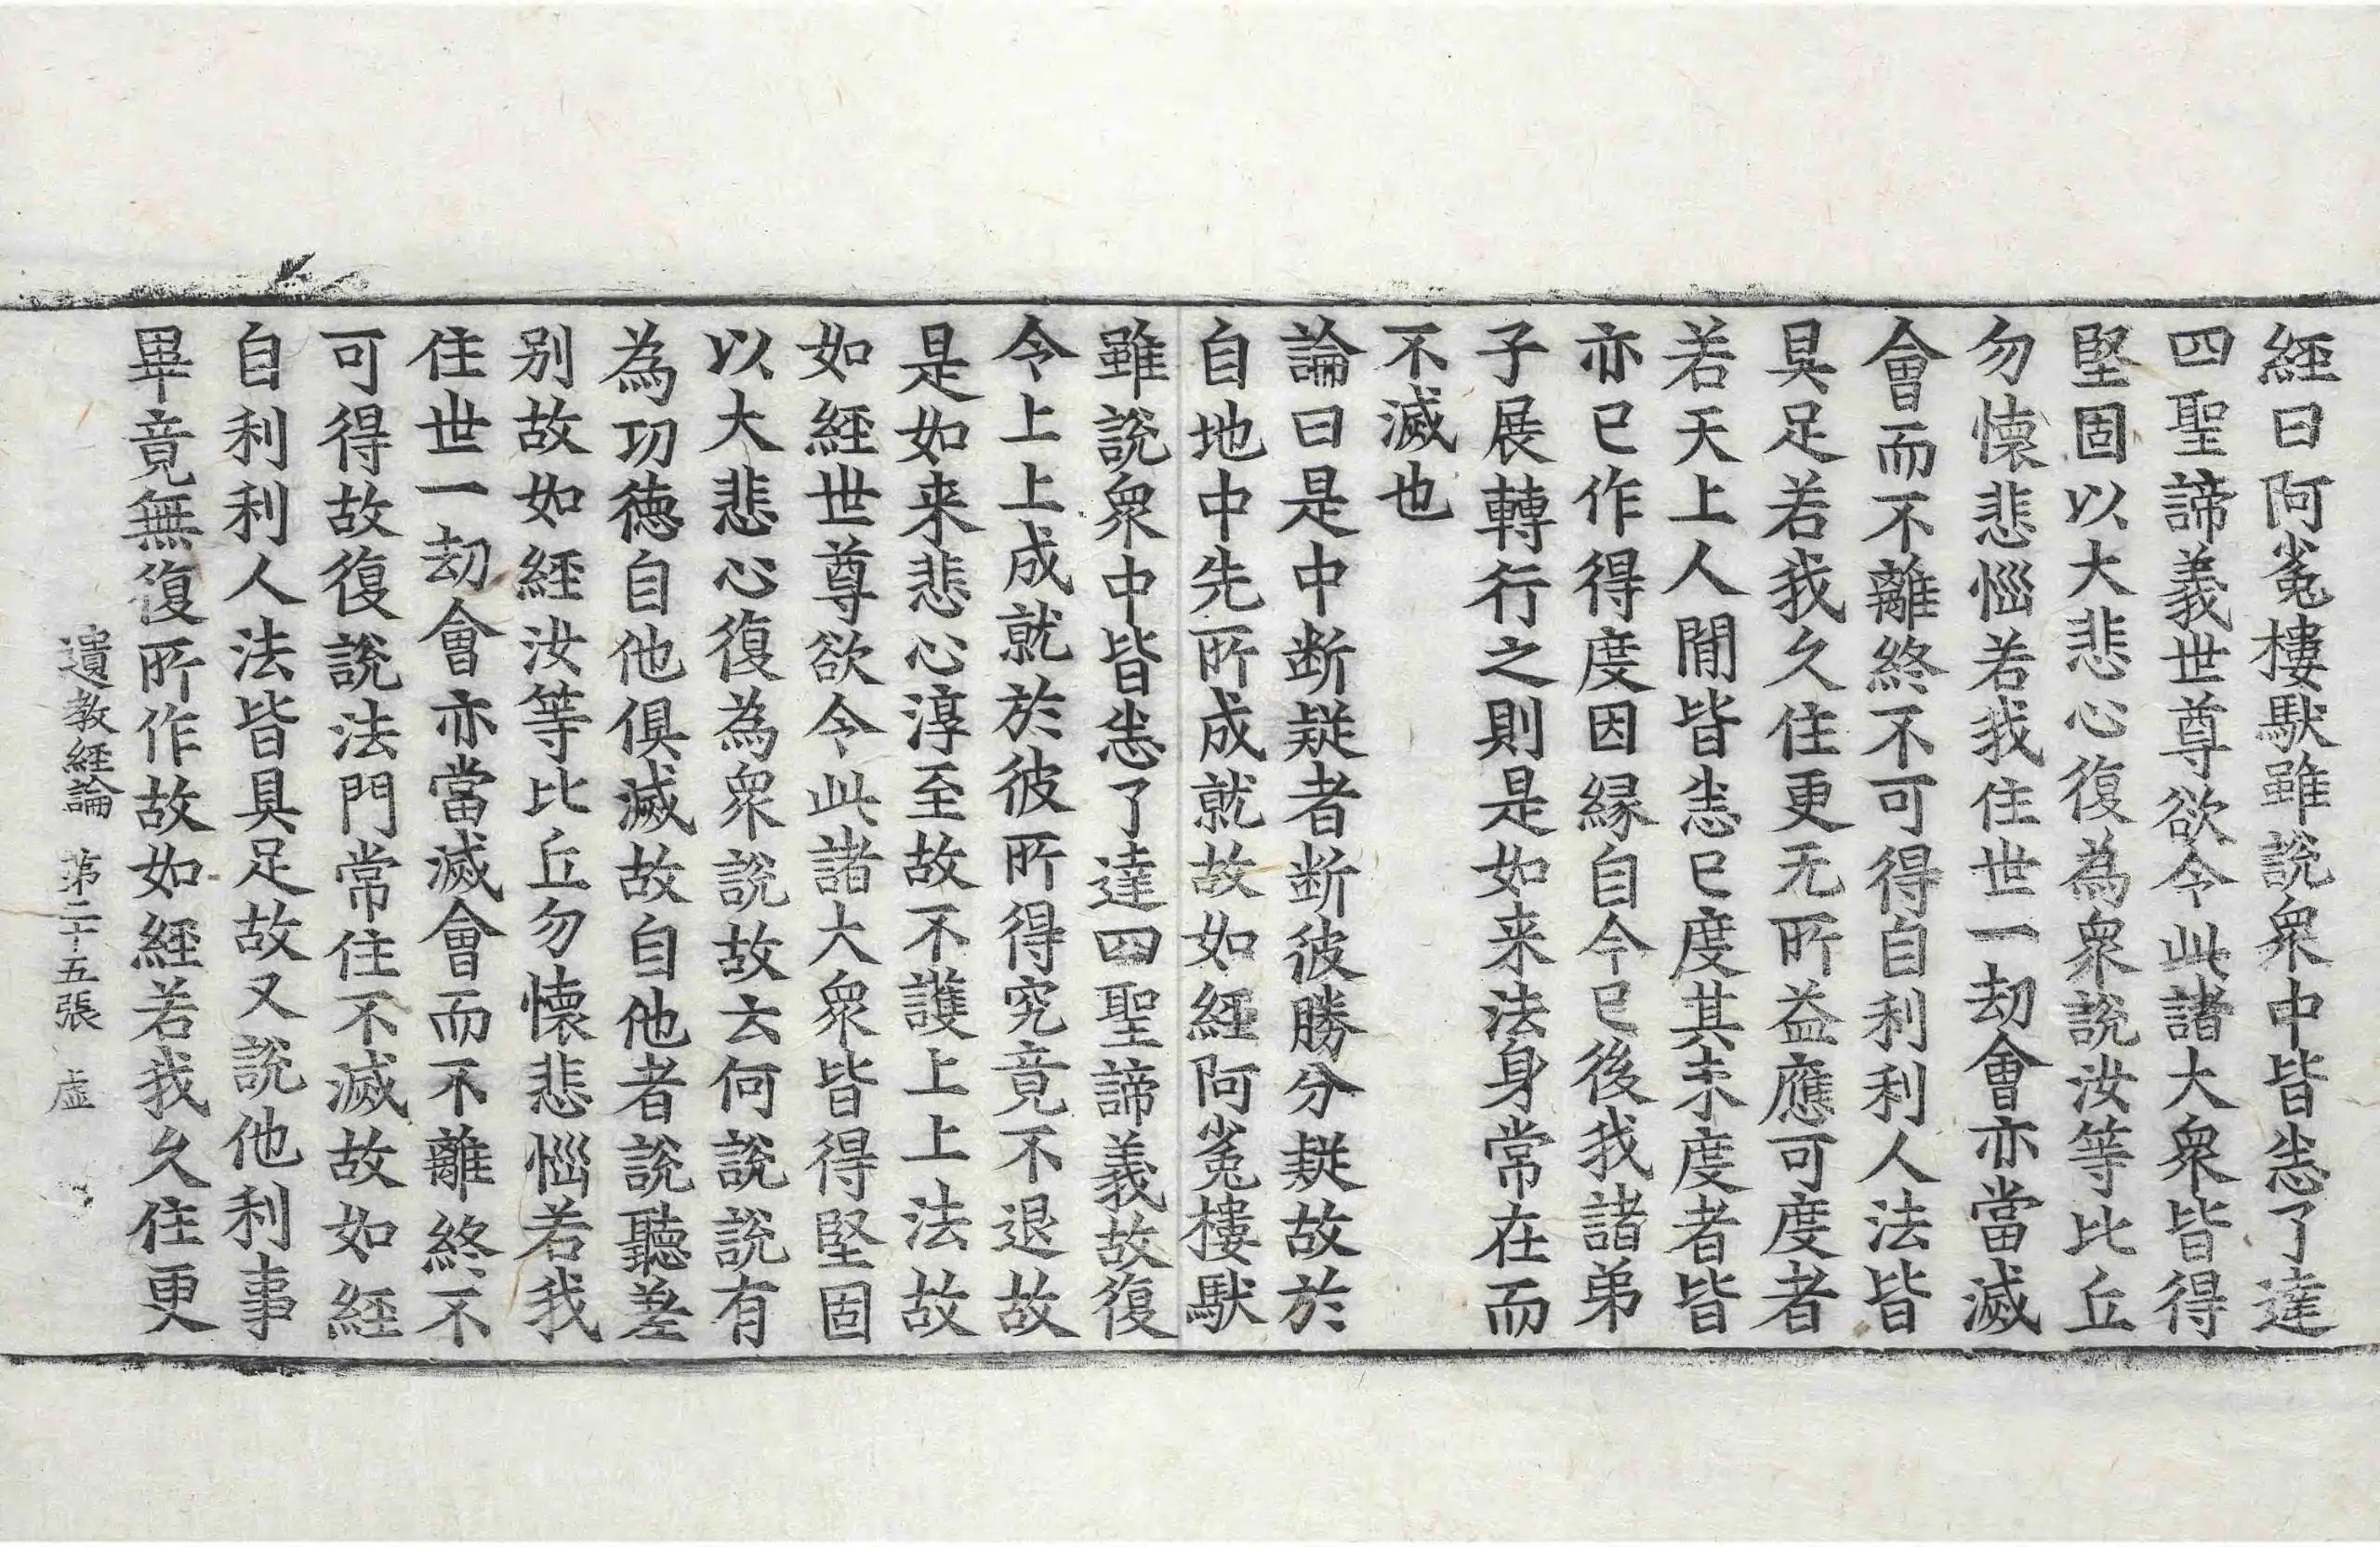 經曰阿㝹樓馱雖說衆中皆悉了達
四聖諦義世尊欲令此諸大衆皆得
堅固以大悲心復為衆說汝等比丘
勿懷悲惱若我住世一劫會亦當滅
會而不離終不可得自利利人法皆
具足若我久住更无所益應可度者
若天上人間皆悉已度其未度者皆
亦已作得度因緣自今已後我諸弟
子展轉行之則是如来法身常在而
不滅也
論曰是中断疑者断彼勝分疑故於
自地中先所成就故如經阿㝹樓馱
雖說衆中皆悉了達四聖諦義故復
令上上成就於彼所得究竟不退故
是如来悲心淳至故不護上上法故
如經世尊欲令此諸大衆皆得堅固
以大悲心復為衆說故云何說說有
為功德自他俱滅故自他者說聽差
別故如經汝等比丘勿懷悲惱若我
住世一劫會亦當滅會而不離終不
可得故復說法門常住不滅故如經
自利利人法皆具足故又說他利事
畢竟無復所作故如經若我久住更
遺教經論 第二十五張 虛